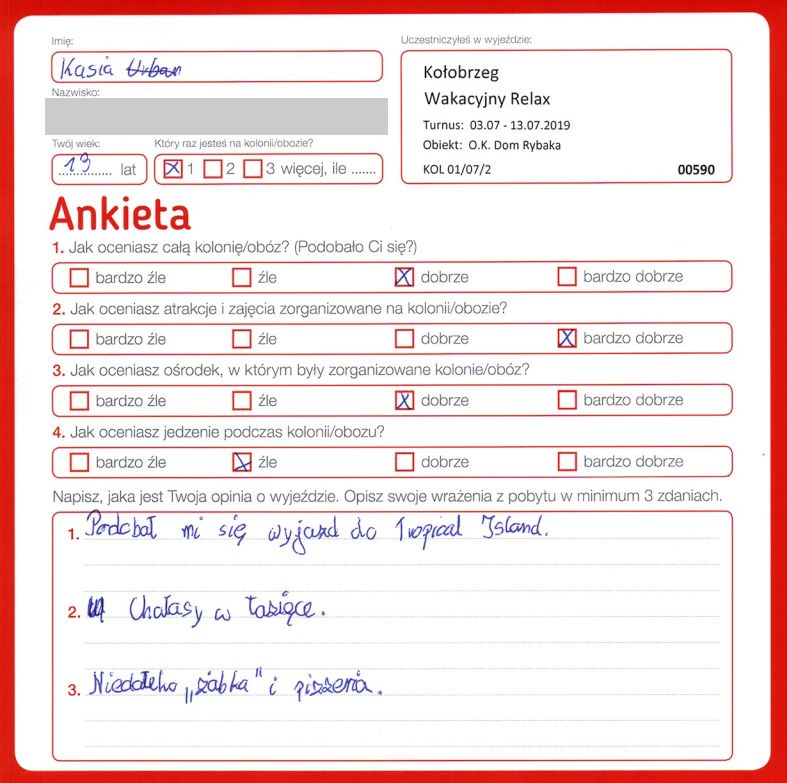 Imię:
Uczestniczyłeś w wyjeździe:
Kasia Urban
Kołobrzeg
Wakacyjny Relax
Nazwisko:
Turnus: 03.07 - 13.07.2019
Obiekt: O.K. Dom Rybaka
KOL 01/07/2 00590
Twój wiek: Który raz jesteś na kolonii/obozie?
13 lat 1 2 3 więcej, ile .......
Ankieta
1. Jak oceniasz całą kolonię/obóz? (Podobało Ci się?)
bardzo źle źle dobrze bardzo dobrze
2. Jak oceniasz atrakcje i zajęcia zorganizowane na kolonii/obozie?
bardzo źle źle dobrze bardzo dobrze
3. Jak oceniasz ośrodek, w którym były zorganizowane kolonie/obóz?
bardzo źle źle dobrze bardzo dobrze
4. Jak oceniasz jedzenie podczas kolonii/obozu?
bardzo źle źle dobrze bardzo dobrze
Napisz, jaka jest Twoja opinia o wyjeździe. Opisz swoje wrażenia z pobytu w minimum 3 zdaniach.
1. Podobał mi się wyjazd do Tropical Island.
2. Chałasy w łazięce.
3. Niedaleko „żabka" i pizzeria.